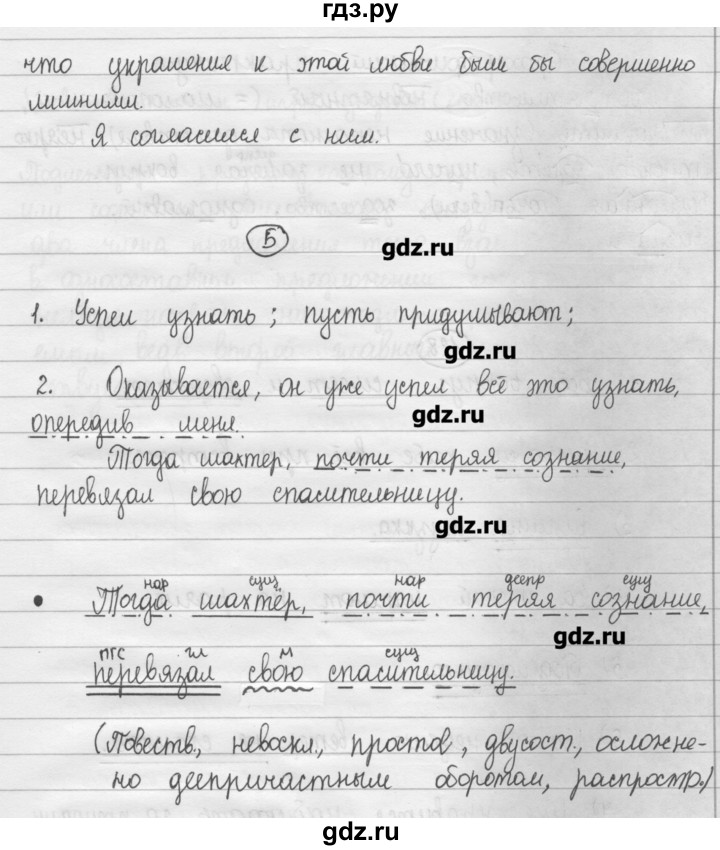 гдз.ру
что украшения к этой любви были бы совершенно
лишними.
Я согласился с ним.
Б
gdz.ru
1. Успел узнать; пусть придумывают;
gdz.ru
2. Оказывается, он уже успел всё это узнать,
gdz.ru
опередив меня.
Тогда шахтер, почти теряя сознание,
перевязал свою спасительницу.
gdz.ru
нар сущ нар дееpr сущ
• Тогда шахтёр, почти теряя сознание,
gdz.ru
пгс гл м сущ
перевязал свою спасительницу.
(Повеств, невоскл., простое, двусост., осложне-
но деепричастным оборотом, распростр.)
gdz.ru